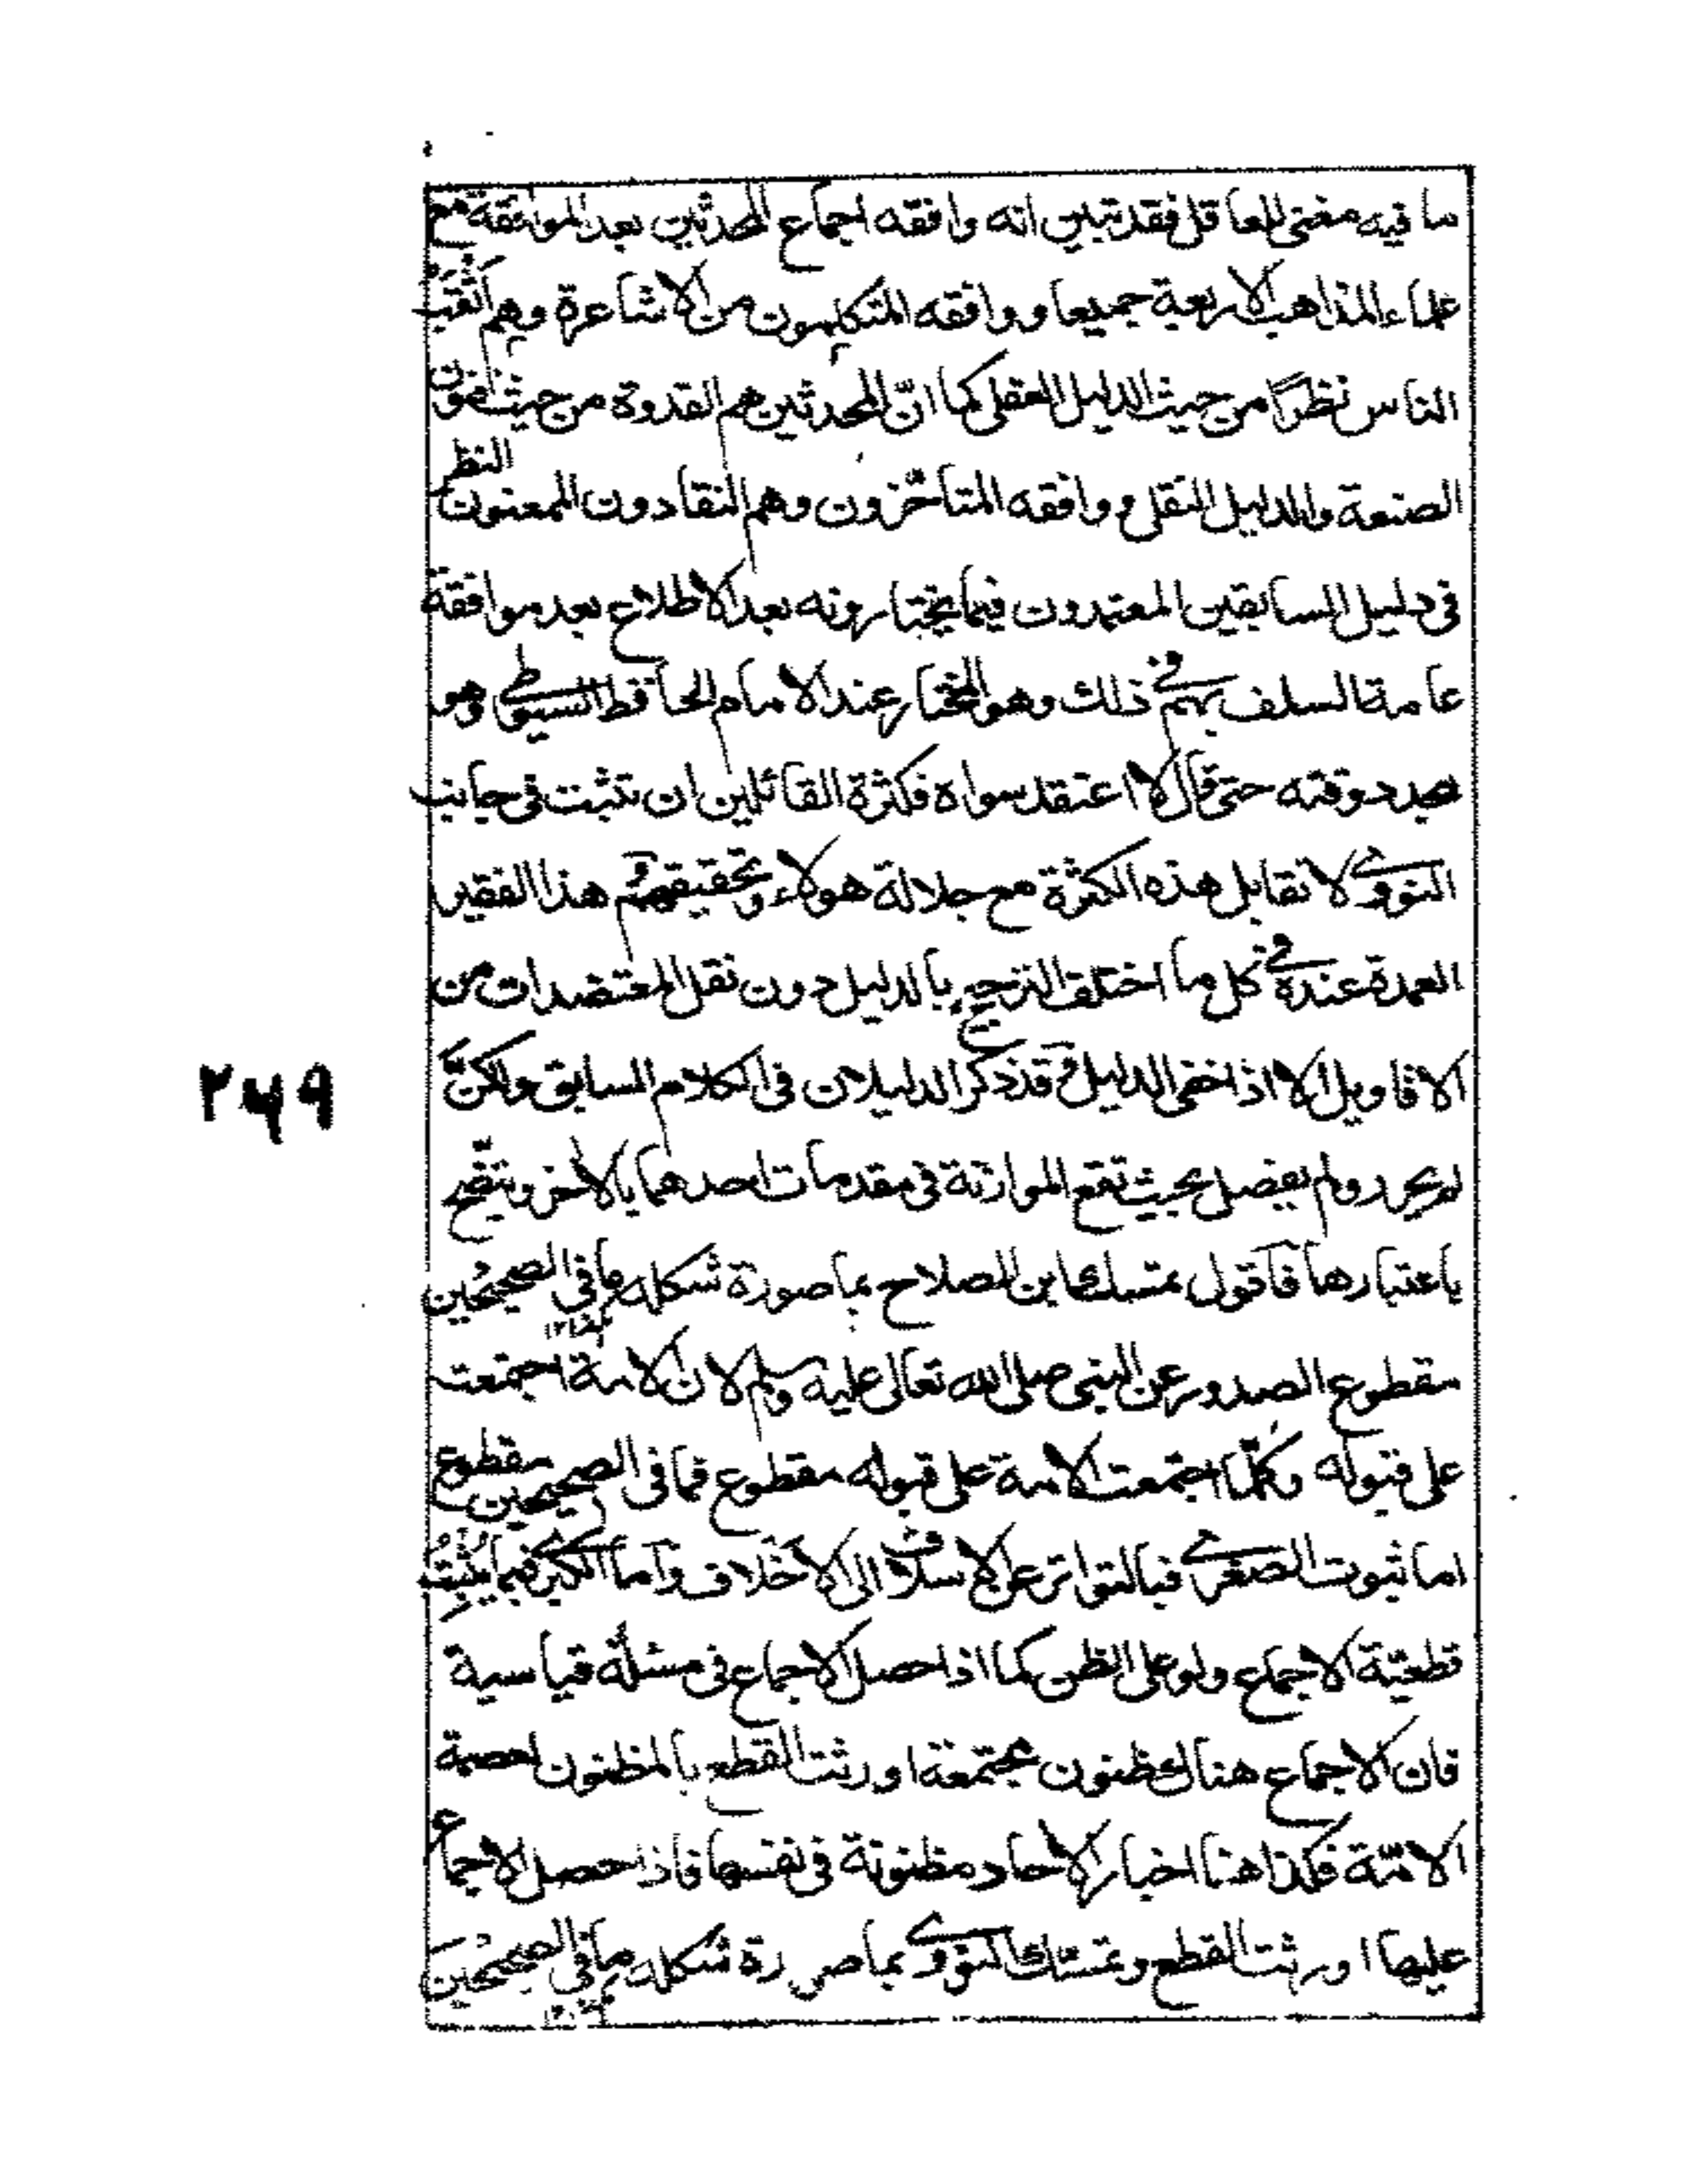 ما فيه مغنى للعاقل فقد تبين انه وافقه اجماع المحدثين بعد الموافقة مع
علماء المذاهب الاربعة جميعا ووافقه المتكلمون من الاشاعرة وهم اثقب
الناس نظرًا من حيث الدليل العقلى كما انّ المحدثين هم القدوة من حيث
الصنعة والدليل النقلى ووافقه المتاخّرون وهم النقادون الممعنون النظر
فى دليل السابقين المعتمدون فيما يختارونه بعد الاطلاع بعد موافقة
عامة السلف بهم فى ذلك وهو المختار عند الامام الحافظ السيوطى وهو
مجدد وقته حتى قال لا اعتقد سواه فكثرة القائلين ان تثبت فى جانب
النووى لا تقابل هذه الكثرة مع جلالة هولاء وتحقيقهم و هذا الفقير
العمدة عنده فى كل ما اختلف الترجيح بالدليل دون نقل المعتضدات من
الاقاويل الا اذا خفى الدليل وقد ذكر الدليلان فى الكلام السابق ولكنّ
لم يحرر ولم يفصل بحيث تقع الموازنة فى مقدمات احدهما بالاخر ويتّضح
باعتبارها فاقول تمسك ابن الصلاح بما صورة شكله ما فى الصحيحين
مقطوع الصدور عن النبى صلى الله تعالى عليه وسلم لان الامة اجتمعت
على قبوله وكلّما اجتمعت الامة على قبوله مقطوع فما فى الصحيحين مقطوع
اما ثبوت الصغرى فبالتواتر عن الاسلاف الى الاخلاف واما الكبرى فبما يُثْبِتُ
قطعيّة الاجماع ولو على الظن كما اذا حصل الاجماع فى مسئلة قياسية
فان الاجماع هناك ظنون مجتمعة اورثت القطع بالمظنون لعصمة
الامّة فكذا هنا اخبار الاحاد مظنونة فى نفسها فاذا حصل الاجماع
عليها اورثت القطع وتمسّك النووى بما صورة شكله ما فى الصحيحين
٢٤٩